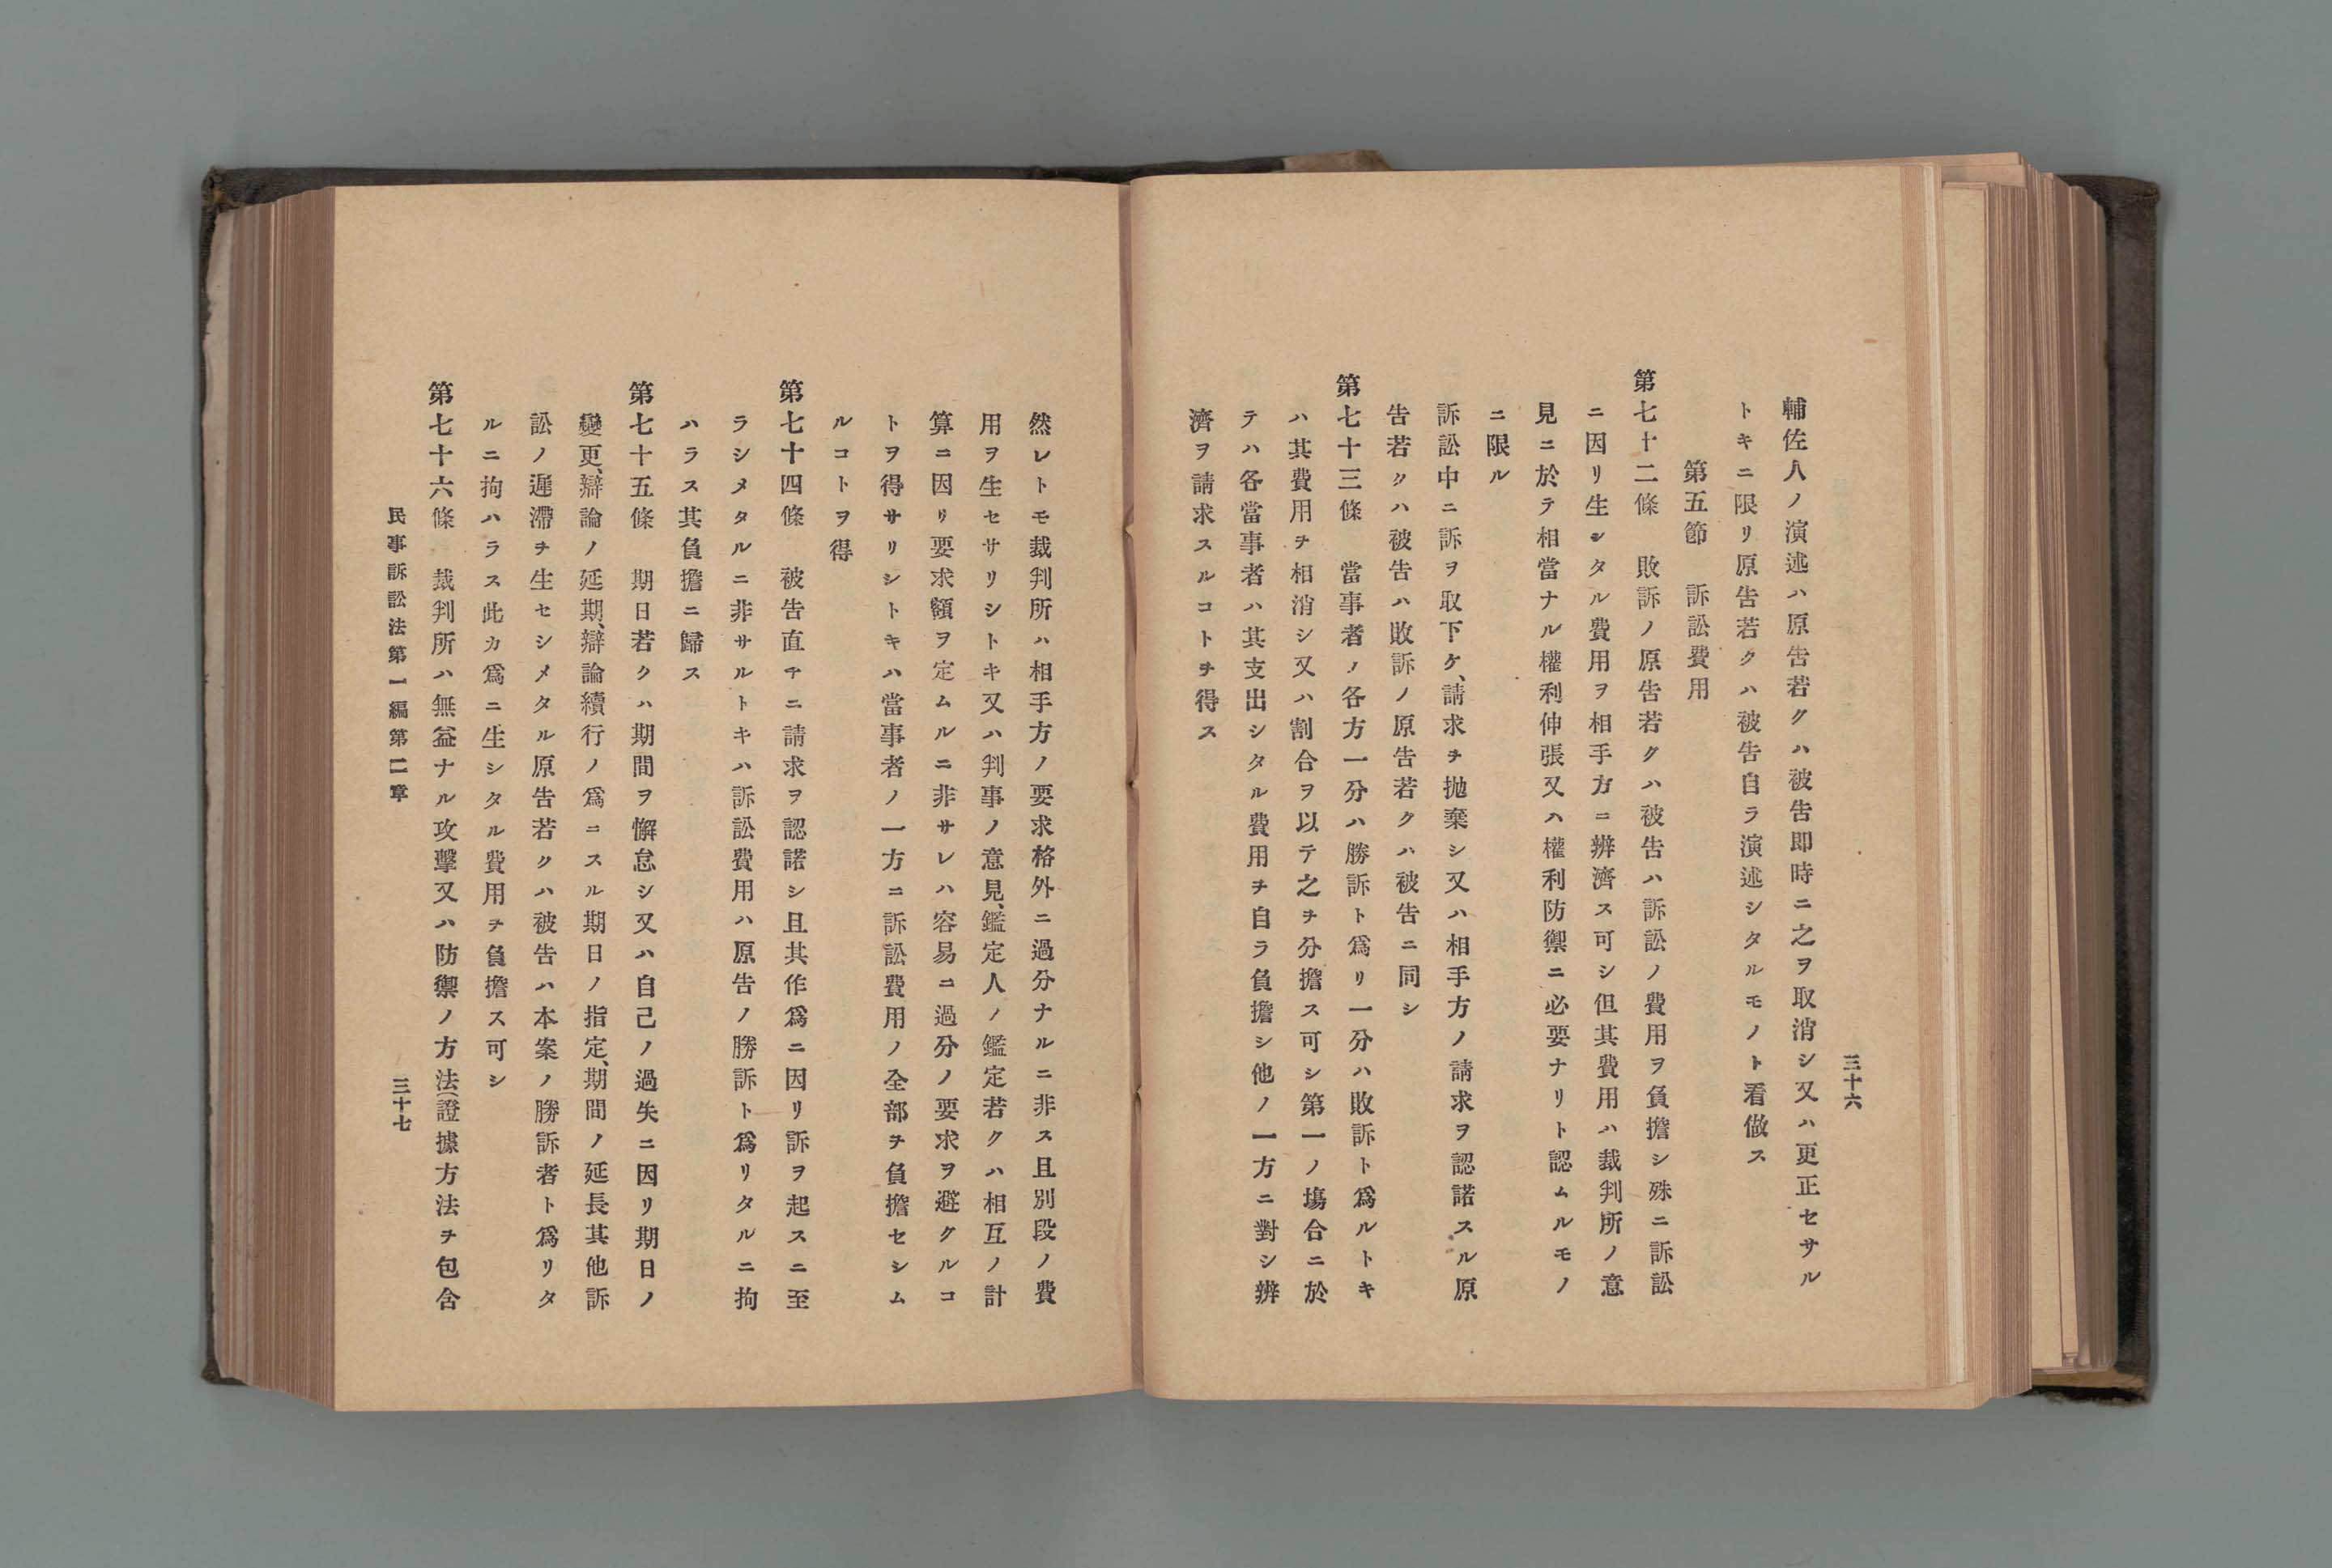 三十六
輔佐人ノ演述ハ原告若クハ被告即時ニ之ヲ取消シ又ハ更正セサル
トキニ限リ原告若クハ被告自ラ演述シタルモノト看做ス
第五節 訴訟費用
第七十二條 敗訴ノ原告若クハ被告ハ訴訟ノ費用ヲ負擔シ殊ニ訴訟
ニ因リ生シタル費用ヲ相手方ニ辨濟ス可シ但其費用ハ裁判所ノ意
見ニ於テ相當ナル權利伸張又ハ權利防禦ニ必要ナリト認ムルモノ
ニ限ル
訴訟中ニ訴ヲ取下ケ、請求ヲ抛棄シ又ハ相手方ノ請求ヲ認諾スル原
告若クハ被告ハ敗訴ノ原告若クハ被告ニ同シ
第七十三條 當事者ノ各方一分ハ勝訴ト爲リ一分ハ敗訴ト爲ルトキ
ハ其費用ヲ相消シ又ハ割合ヲ以テ之ヲ分擔ス可シ第一ノ塲合ニ於
テハ各當事者ハ其支出シタル費用ヲ自ラ負擔シ他ノ一方ニ對シ辨
濟ヲ請求スルコトヲ得ス
然レトモ裁判所ハ相手方ノ要求格外ニ過分ナルニ非ス且別段ノ費
用ヲ生セサリシトキ又ハ判事ノ意見、鑑定人ノ鑑定若クハ相互ノ計
算ニ因リ要求額ヲ定ムルニ非サレハ容易ニ過分ノ要求ヲ避クルコ
トヲ得サリシトキハ當事者ノ一方ニ訴訟費用ノ全部ヲ負擔セシム
ルコトヲ得
第七十四條 被告直チニ請求ヲ認諾シ且其作爲ニ因リ訴ヲ起スニ至
ラシメタルニ非サルトキハ訴訟費用ハ原告ノ勝訴ト爲リタルニ拘
ハラス其負擔ニ歸ス
第七十五條 期日若クハ期間ヲ懈怠シ又ハ自己ノ過失ニ因リ期日ノ
變更、辯論ノ延期、辯論續行ノ爲ニスル期日ノ指定、期間ノ延長其他訴
訟ノ遲滯ヲ生セシメタル原告若クハ被告ハ本案ノ勝訴者ト爲リタ
ルニ拘ハラス此カ爲ニ生シタル費用ヲ負擔ス可シ
第七十六條 裁判所ハ無益ナル攻擊又ハ防禦ノ方法(證據方法ヲ包含
民事訴訟法第一編第二章
三十七